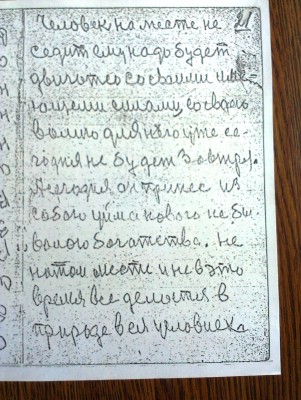 21
Человек на месте не
седит ему надо будет
двигатся со своими име-
ющеми силами, со своею
волию для него уже се-
годня не будет Завтра.
А сегодня он принес из
собою уйма нового не бы-
валого богатства. не
на том месте и не в это
время все делостся в
природе в ея условиех